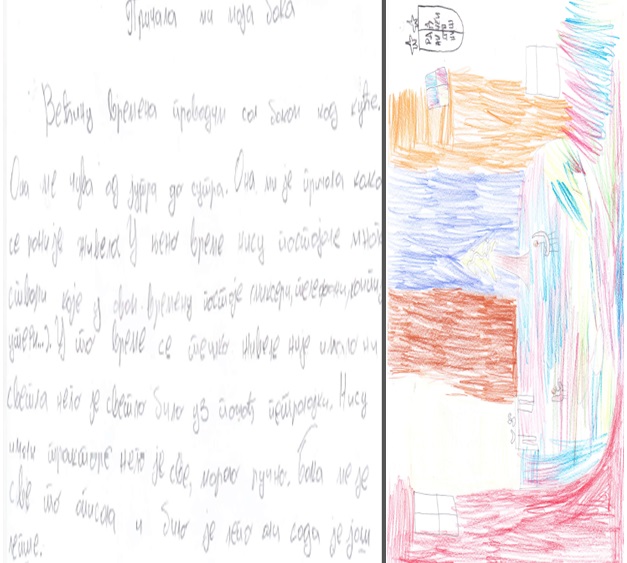 Причала ми моја бака
Већину времена проводим са баком код куће.
Она ме чува од јутра до сутра. Она ми је причала како
се раније живело. У њено време нису постојале многе
ствари које у овом времену постоје (миксери, телефони, компј
утери...). У то време се тешко живело није имало ни
светла него је светло било уз помоћ петролејки. Нису
имали тракторе него је све, морао ручно. Бака ми је
све то описала и било је лепо али сада је још
лепше.